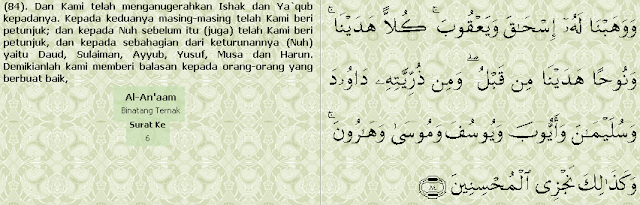 (84). Dan Kami telah menganugerahkan Ishak dan Ya`qub
kepadanya. Kepada keduanya masing-masing telah Kami beri
petunjuk; dan kepada Nuh sebelum itu (juga) telah Kami beri
petunjuk, dan kepada sebahagian dari keturunannya (Nuh)
yaitu Daud, Sulaiman, Ayyub, Yusuf, Musa dan Harun.
Demikianlah kami memberi balasan kepada orang-orang yang
berbuat baik,
Al-An'aam
Binatang Ternak
Surat Ke
6
وَوَهَبْنَا لَهُۥٓ إِسْحَـٰقَ وَيَعْقُوبَ ۚ كُلًّا هَدَيْنَا ۚ
وَنُوحًا هَدَيْنَا مِن قَبْلُ ۖ وَمِن ذُرِّيَّتِهِۦ دَاوُۥدَ
وَسُلَيْمَـٰنَ وَأَيُّوبَ وَيُوسُفَ وَمُوسَىٰ وَهَـٰرُونَ ۚ
وَكَذَٰلِكَ نَجْزِى ٱلْمُحْسِنِينَ ٨٤